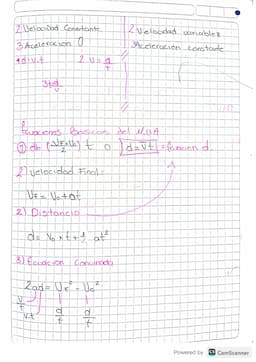 2 Velocidad Constante
3 Aceleracion 0
4 d=v.t 2 v=d/t
3 t=d/v
2 Velocidad variable
3 Aceleración constante
Ecuaciones Basicas del
① d= (Vf+Vo/2) t o d=vt =funcion d.
2) Velocidad Final:
Vf = Vo+at
2) Distancia
d= Vo x t + 1/2 at²
3) Ecuacion Convinada
2ad= Vf² - Vo²
v/t d/t d/t
v.t
Powered by CS CamScanner